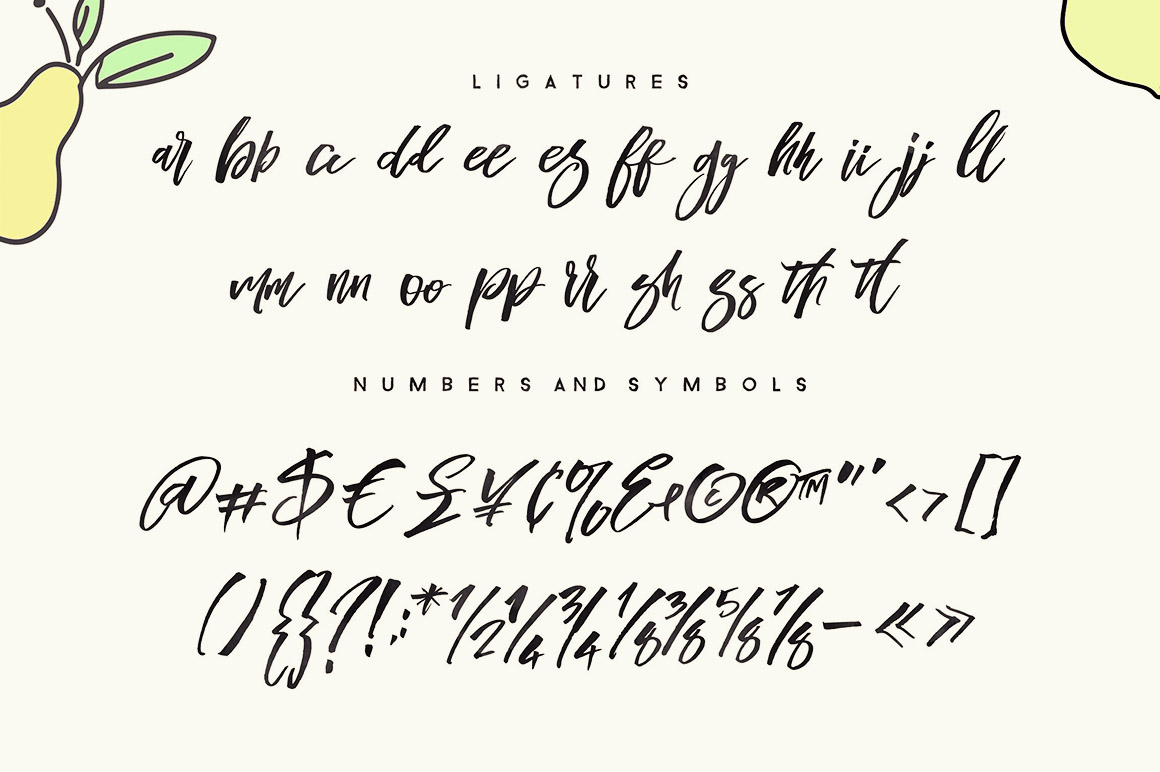 LIGATURES
ar bb cc dd ee es ff gg hh ii jj ll
mm nn oo pp rr sh ss th tt
NUMBERS AND SYMBOLS
@#$€£¥¢%&©®™"'<>[]
(){}?!:;*½¼¾⅛⅜⅝⅞–«»